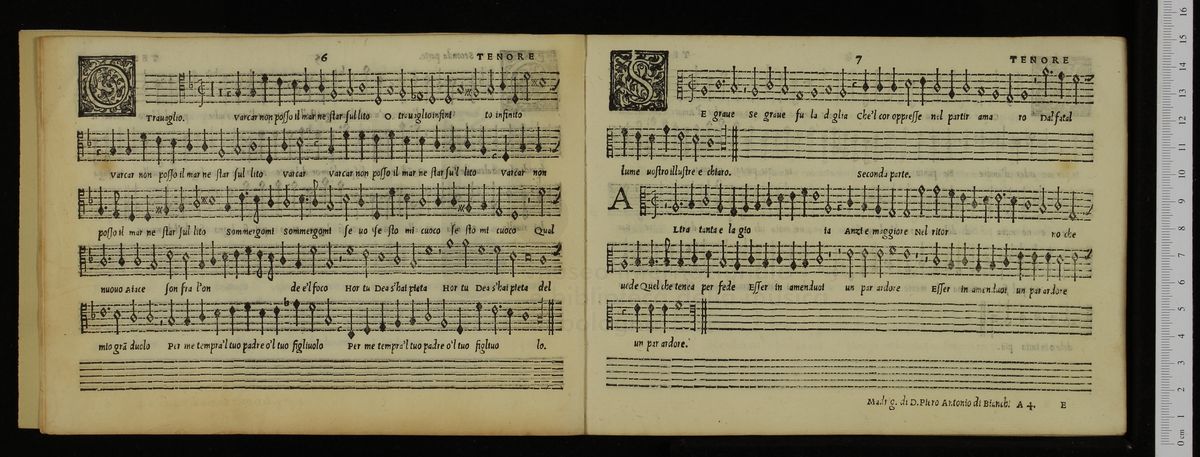 6 TENORE
O Trauaglio. Varcar non posso il mar ne star sul lito O trauaglio infini to infinito
Varcar non posso il mar ne star sul lito Varcar Varcar non posso il mar ne star su'l lito Varcar non
posso il mar ne star sul lito Sommergomi Sommergomi se uo se sto mi cuoco se sto mi cuoco Qual
nuouo Aiace son fra l'on de e'l foco Hor tu Dea s'hai pieta Hor tu Dea s'hai pieta del
mio grã duolo Per me tempra'l tuo padre o'l tuo figliuolo Per me tempra'l tuo padre o'l tuo figliuo lo.
7 TENORE
S E graue Se graue fu la doglia Che'l cor oppresse nel partir ama ro Dal fatal
lume uostro illustre e chiaro. Seconda parte.
A Ltra tanta e la gio ia Anzi e maggiore Nel ritor no che
uede Quel che tenea per fede Esser in amenduoi un par ardore Esser in amenduoi un par ardore
un par ardore.
Madrig. di D. Piero Antonio di Bianchi A 4. E